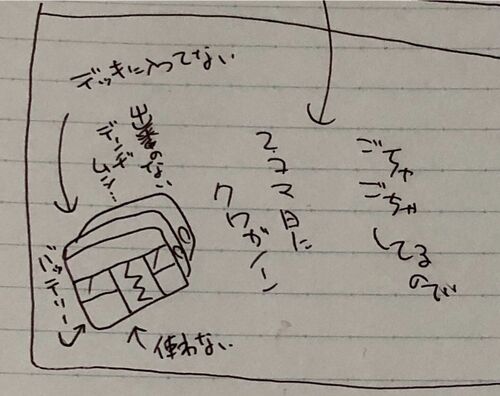 ごちゃ
ごちゃ
してる
ので
2コマ目に
クワガノン
デッキに入ってない
出番のない
デンヂ
ムシ…
バッテリー
使わない